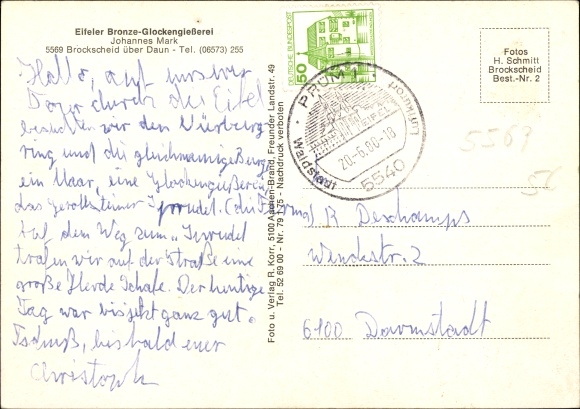 Eifeler Bronze-Glockengießerei
Johannes Mark
5569 Brockscheid über Daun - Tel. (06573) 255
Hallo, auf unserer
Tour durch die Eifel
besuchten wir den Nürburg
ring und die gleichnamige Burg,
ein Maar, eine Glockengießerei,
das Gerolsteiner Sprudel. (die Firma)
Auf dem Weg zum „Sprudel
trafen wir auf der Straße eine
große Herde Schafe. Der heutige
Tag war bis jetzt ganz gut.
Tschüß, bis bald euer
Christoph
Foto u. Verlag R. Korr, 5100 Aachen-Brand, Freunder Landstr. 49
Tel. 52 69 00 - Nr. 79 1 75 - Nachdruck verboten
DEUTSCHE BUNDESPOST
50
PRÜM
Luftkurort
EIFEL
20.-6.80-18
Waldstadt
5540
Fotos
H. Schmitt
Brockscheid
Best.-Nr. 2
5569
R Deschamps
Wendestr. 2
6100 Darmstadt